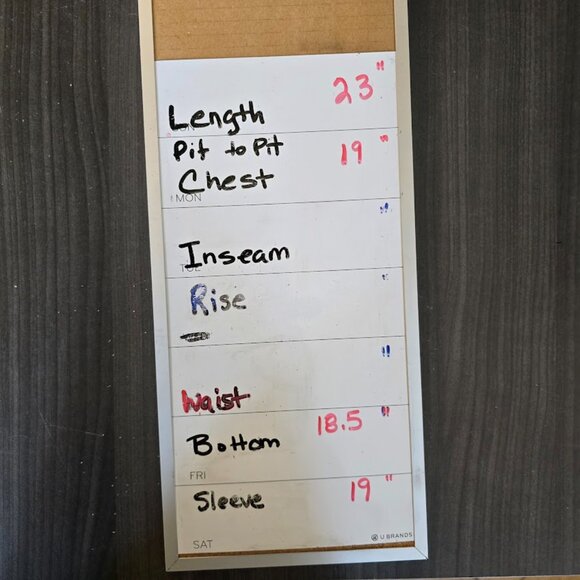 23"
Length
Pit to Pit
19 "
Chest
MON
"
Inseam
"
Rise
"
Waist
18.5 "
Bottom
FRI
Sleeve 19 "
SAT
U BRANDS